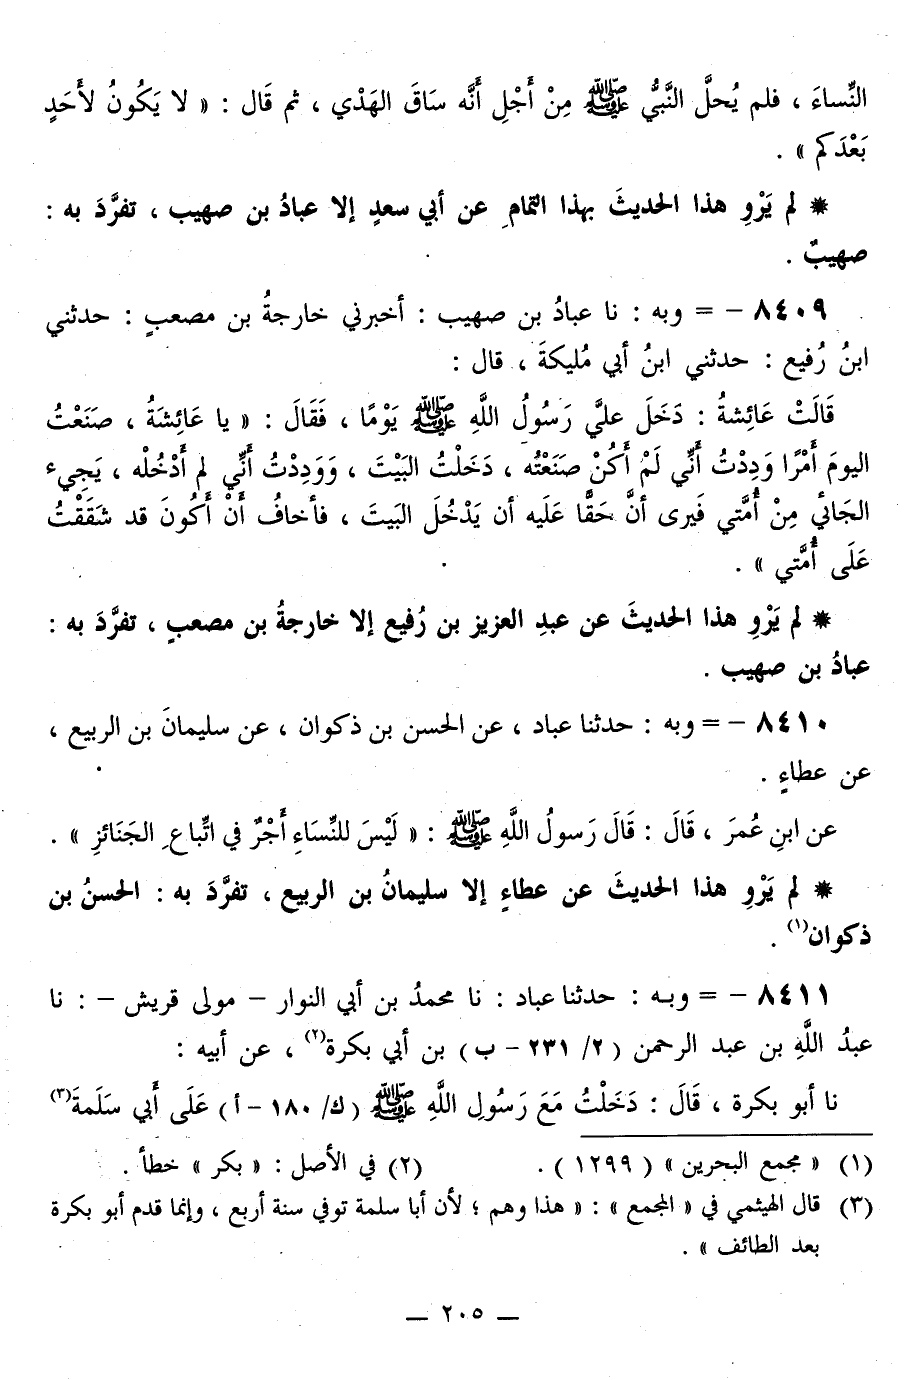 النِّساءَ ، فلم يُحلَّ النَّبيُّ ﷺ مِنْ أَجْلِ أَنَّه سَاقَ الهَدْي ، ثم قَال : « لا يَكُونُ لأَحَدٍ
بَعْدَكم » .
* لم يَرْوِ هذا الحديثَ بهذا التمامِ عن أبي سعدٍ إلا عبادُ بن صهيب ، تفرَّدَ به :
صهيبٌ .
٨٤٠٩ – = وبه : نا عبادُ بن صهيب : أخبرني خارجةُ بن مصعبٍ : حدثني
ابنُ رُفيع : حدثني ابنُ أبي مُليكةَ ، قال :
قَالَتْ عَائِشةُ : دَخَلَ عليَّ رَسُولُ اللَّهِ ﷺ يَوْمًا ، فَقَالَ : « يا عَائِشَةُ ، صنَعْتُ
اليومَ أَمْرًا وَدِدْتُ أَنِّي لَمْ أَكُنْ صَنَعْتُه ، دَخَلْتُ البَيْتَ ، وَوَدِدْتُ أَنِّي لم أَدْخُلْه ، يَجِيء
الجَائي مِنْ أُمَّتي فَيرى أنَّ حَقًّا عَلَيه أن يَدْخُلَ البَيتَ ، فأخافُ أَنْ أَكُونَ قد شقَقْتُ
عَلَى أُمَّتي » .
* لم يَرْوِ هذا الحديثَ عن عبدِ العزيز بن رُفيع إلا خارجةُ بن مصعبٍ ، تفرَّدَ به :
عبادُ بن صهيب .
٨٤١٠ – = وبه : حدثنا عباد ، عن الحسن بن ذكوان ، عن سليمانَ بن الربيع ،
عن عطاءٍ .
عن ابنِ عُمرَ ، قَالَ : قَالَ رَسولُ اللَّهِ ﷺ : « لَيْسَ للنِّسَاءِ أَجْرٌ في اتِّباعِ الجَنَائزِ » .
* لم يَرْوِ هذا الحديثَ عن عطاءٍ إلا سليمانُ بن الربيع ، تفرَّدَ به : الحسنُ بن
ذكوان(١) .
٨٤١١ – = وبه : حدثنا عباد : نا محمدُ بن أبي النوار – مولى قريش – : نا
عبدُ اللَّهِ بن عبد الرحمن (٢/ ٢٣١ – ب) بن أبي بكرة(٢) ، عن أبيه :
نا أبو بكرة ، قَالَ : دَخَلْتُ مَعَ رَسُولِ اللَّهِ ﷺ (ك/ ١٨٠ – أ) عَلَى أَبي سَلَمةَ(٣)
(١) « مجمع البحرين » (١٢٩٩) . (٢) في الأصل : « بكر » خطأ .
(٣) قال الهيثمي في « المجمع » : « هذا وهم ؛ لأن أبا سلمة توفي سنة أربع ، وإنما قدم أبو بكرة
بعد الطائف » .
— ٢٠٥ —